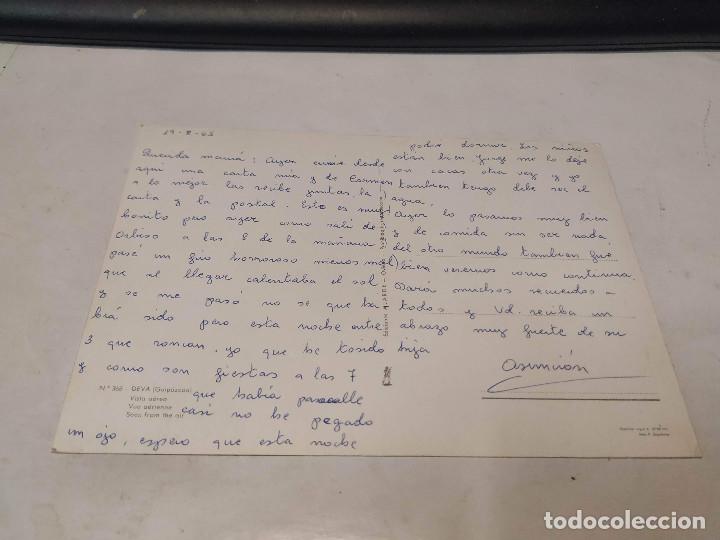 19-8-63
Querida mamá: Ayer envié desde
aquí una carta mía y de Carmen
a lo mejor las recibe juntas, la
carta y la postal. Esto es muy
bonito pero ayer como salí de
a las 8 de la mañana
pasé un frío horroroso menos mal
que al llegar calentaba el sol
y se me pasó no se que ha
brá sido pero esta noche entre
3 que roncan, yo que he tosido
y como son fiestas a las 7
que había pasacalle
casi no he pegado
un ojo, espero que esta noche
poder dormir. Los niños
estan bien, Jorge me lo deje
con cacas otra vez y yo
tambien tengo debe ser el
agua.
Ayer lo pasamos muy bien
y de comida sin ser nada
del otro mundo tambien fue
bien veremos como continua.
Dará muchos recuerdos a
todos y Vd. reciba un
abrazo muy fuerte de su
hija
Asunción
N.º 368 - DEVA (Guipúzcoa)
Vista aérea
Vue aérienne
Seen from the air
todocoleccion.net